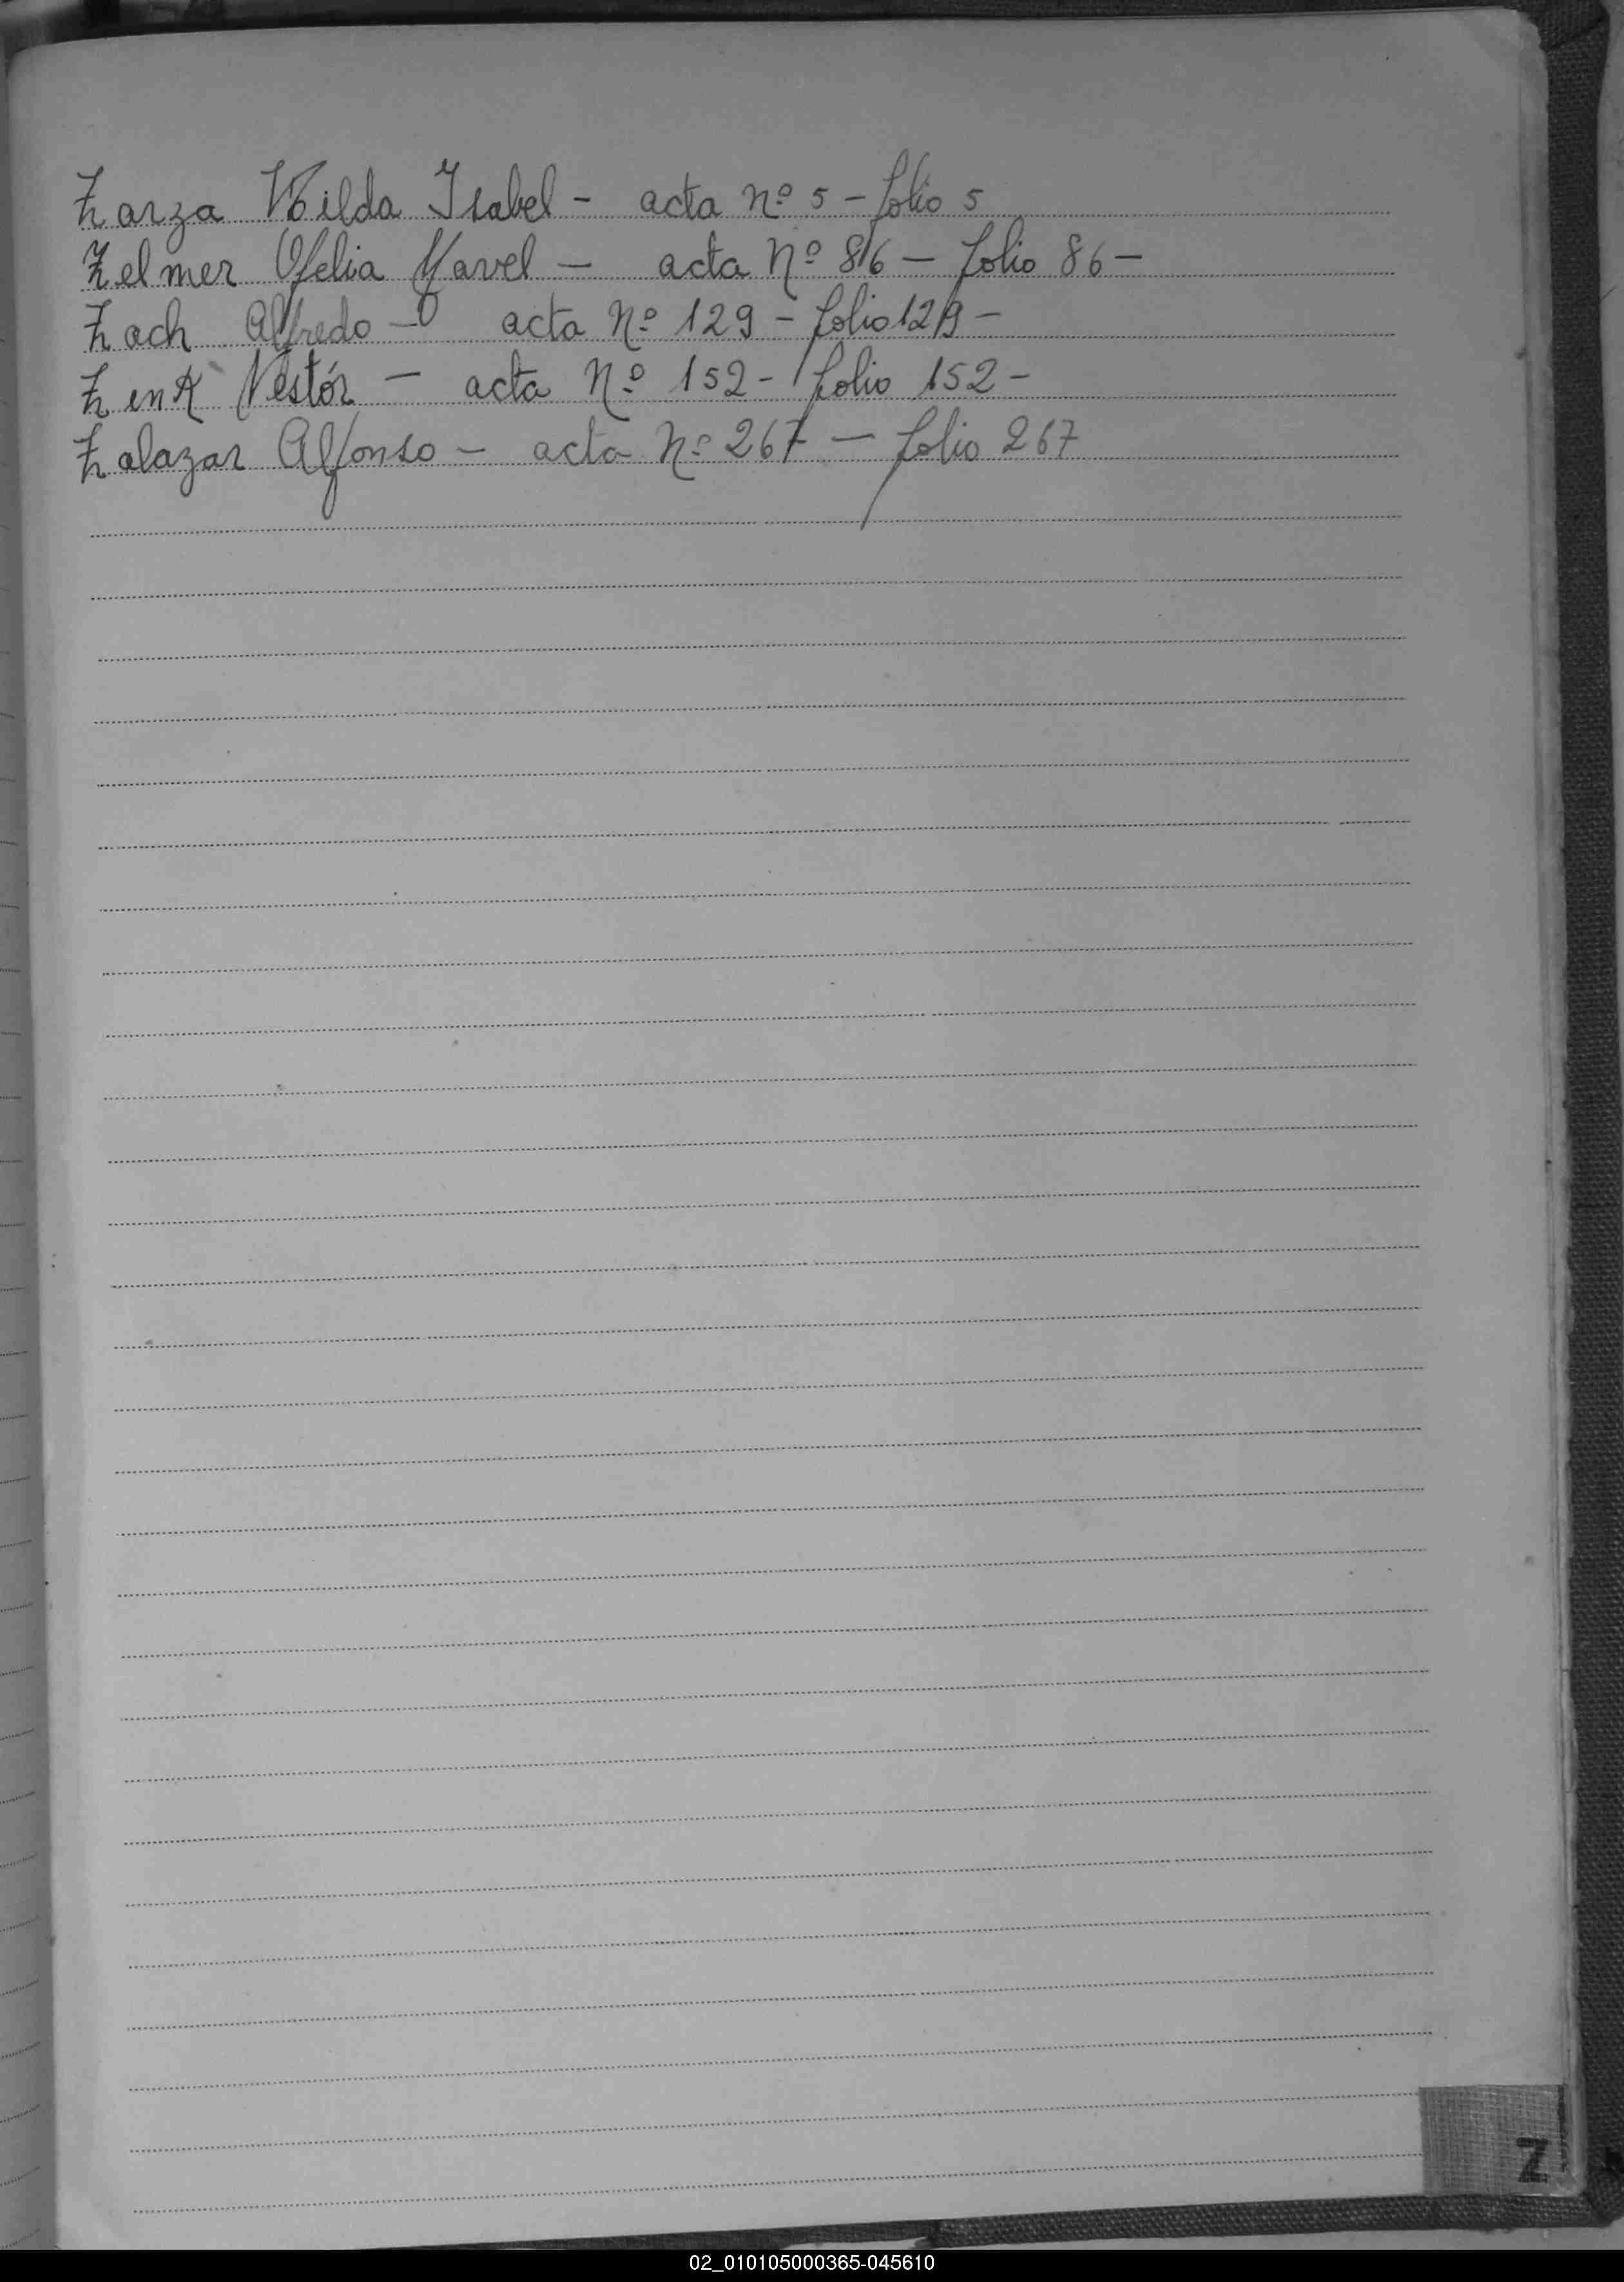 Zarza Nilda Isabel - acta nº 5 - folio 5
Zelmer Ofelia Mavel - acta Nº 86 - folio 86 -
Zach Alfredo - acta Nº 129 - folio 129 -
Zenk Nestór - acta Nº 152 - folio 152 -
Zalazar Alfonso - acta Nº 267 - folio 267
Z
02_010105000365-045610